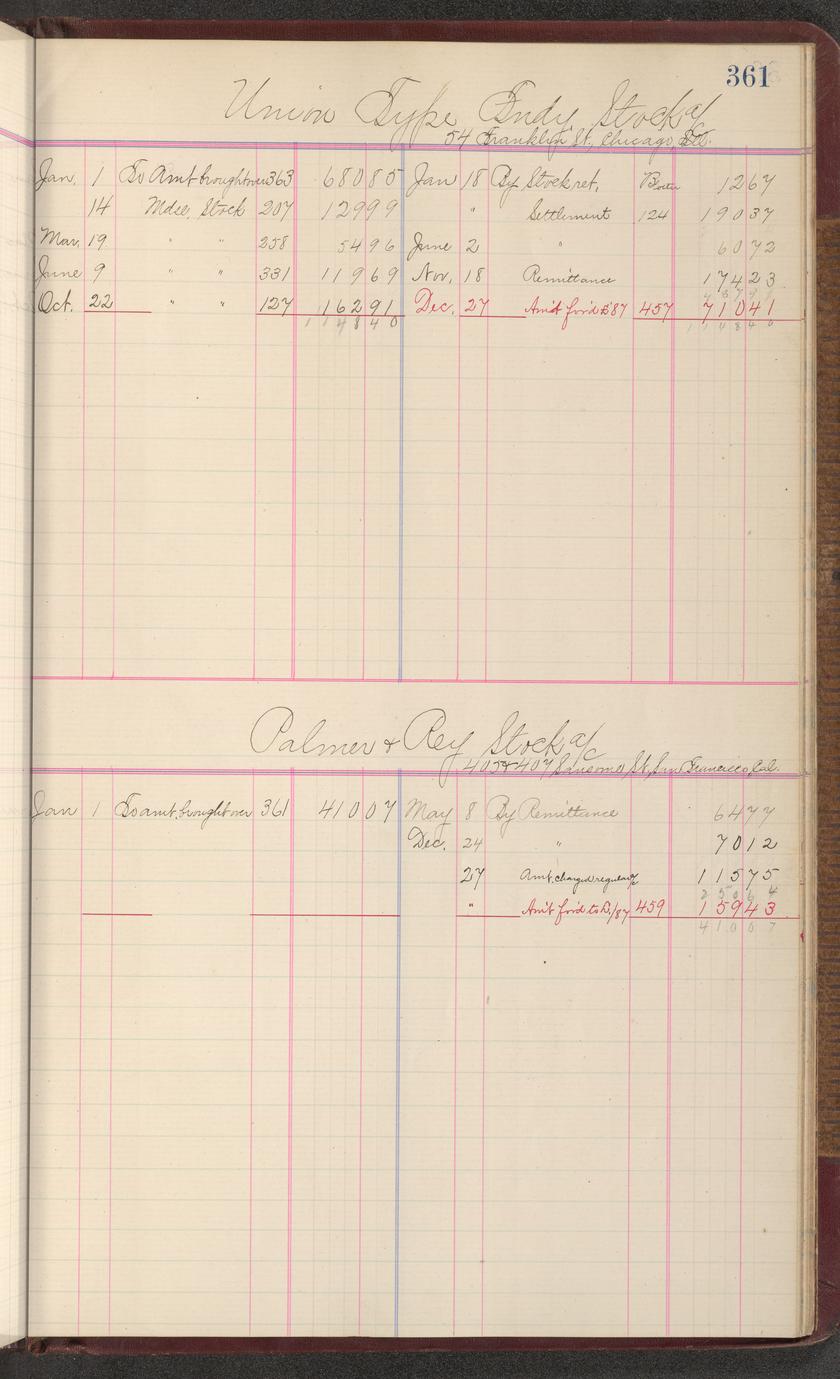 361
Union Type Fndy Stock a/c
54 Franklin St., Chicago, Ill.
Jan. 1 To Amt brought over 363 68085 Jan 18 By Stock ret. 1267
14 Mdse. Stock 207 12999 " Settlement 124 19037
Mar. 19 " " 258 5496 June 2 " 6072
June 9 " " 331 11969 Nov. 18 Remittance 17423
Oct. 22 " " 127 16291 Dec. 27 Am't for'd 457 71041
114840 114840
Palmer & Rey Stock a/c
405 & 407 Sansome St., San Francisco Cal.
Jan 1 To amt. brought over 361 41007 May 8 By Remittance 6477
Dec. 24 " 7012
27 Amt. charged regular a/c 11575
25064
" Am't for'd to 459 15943
41007